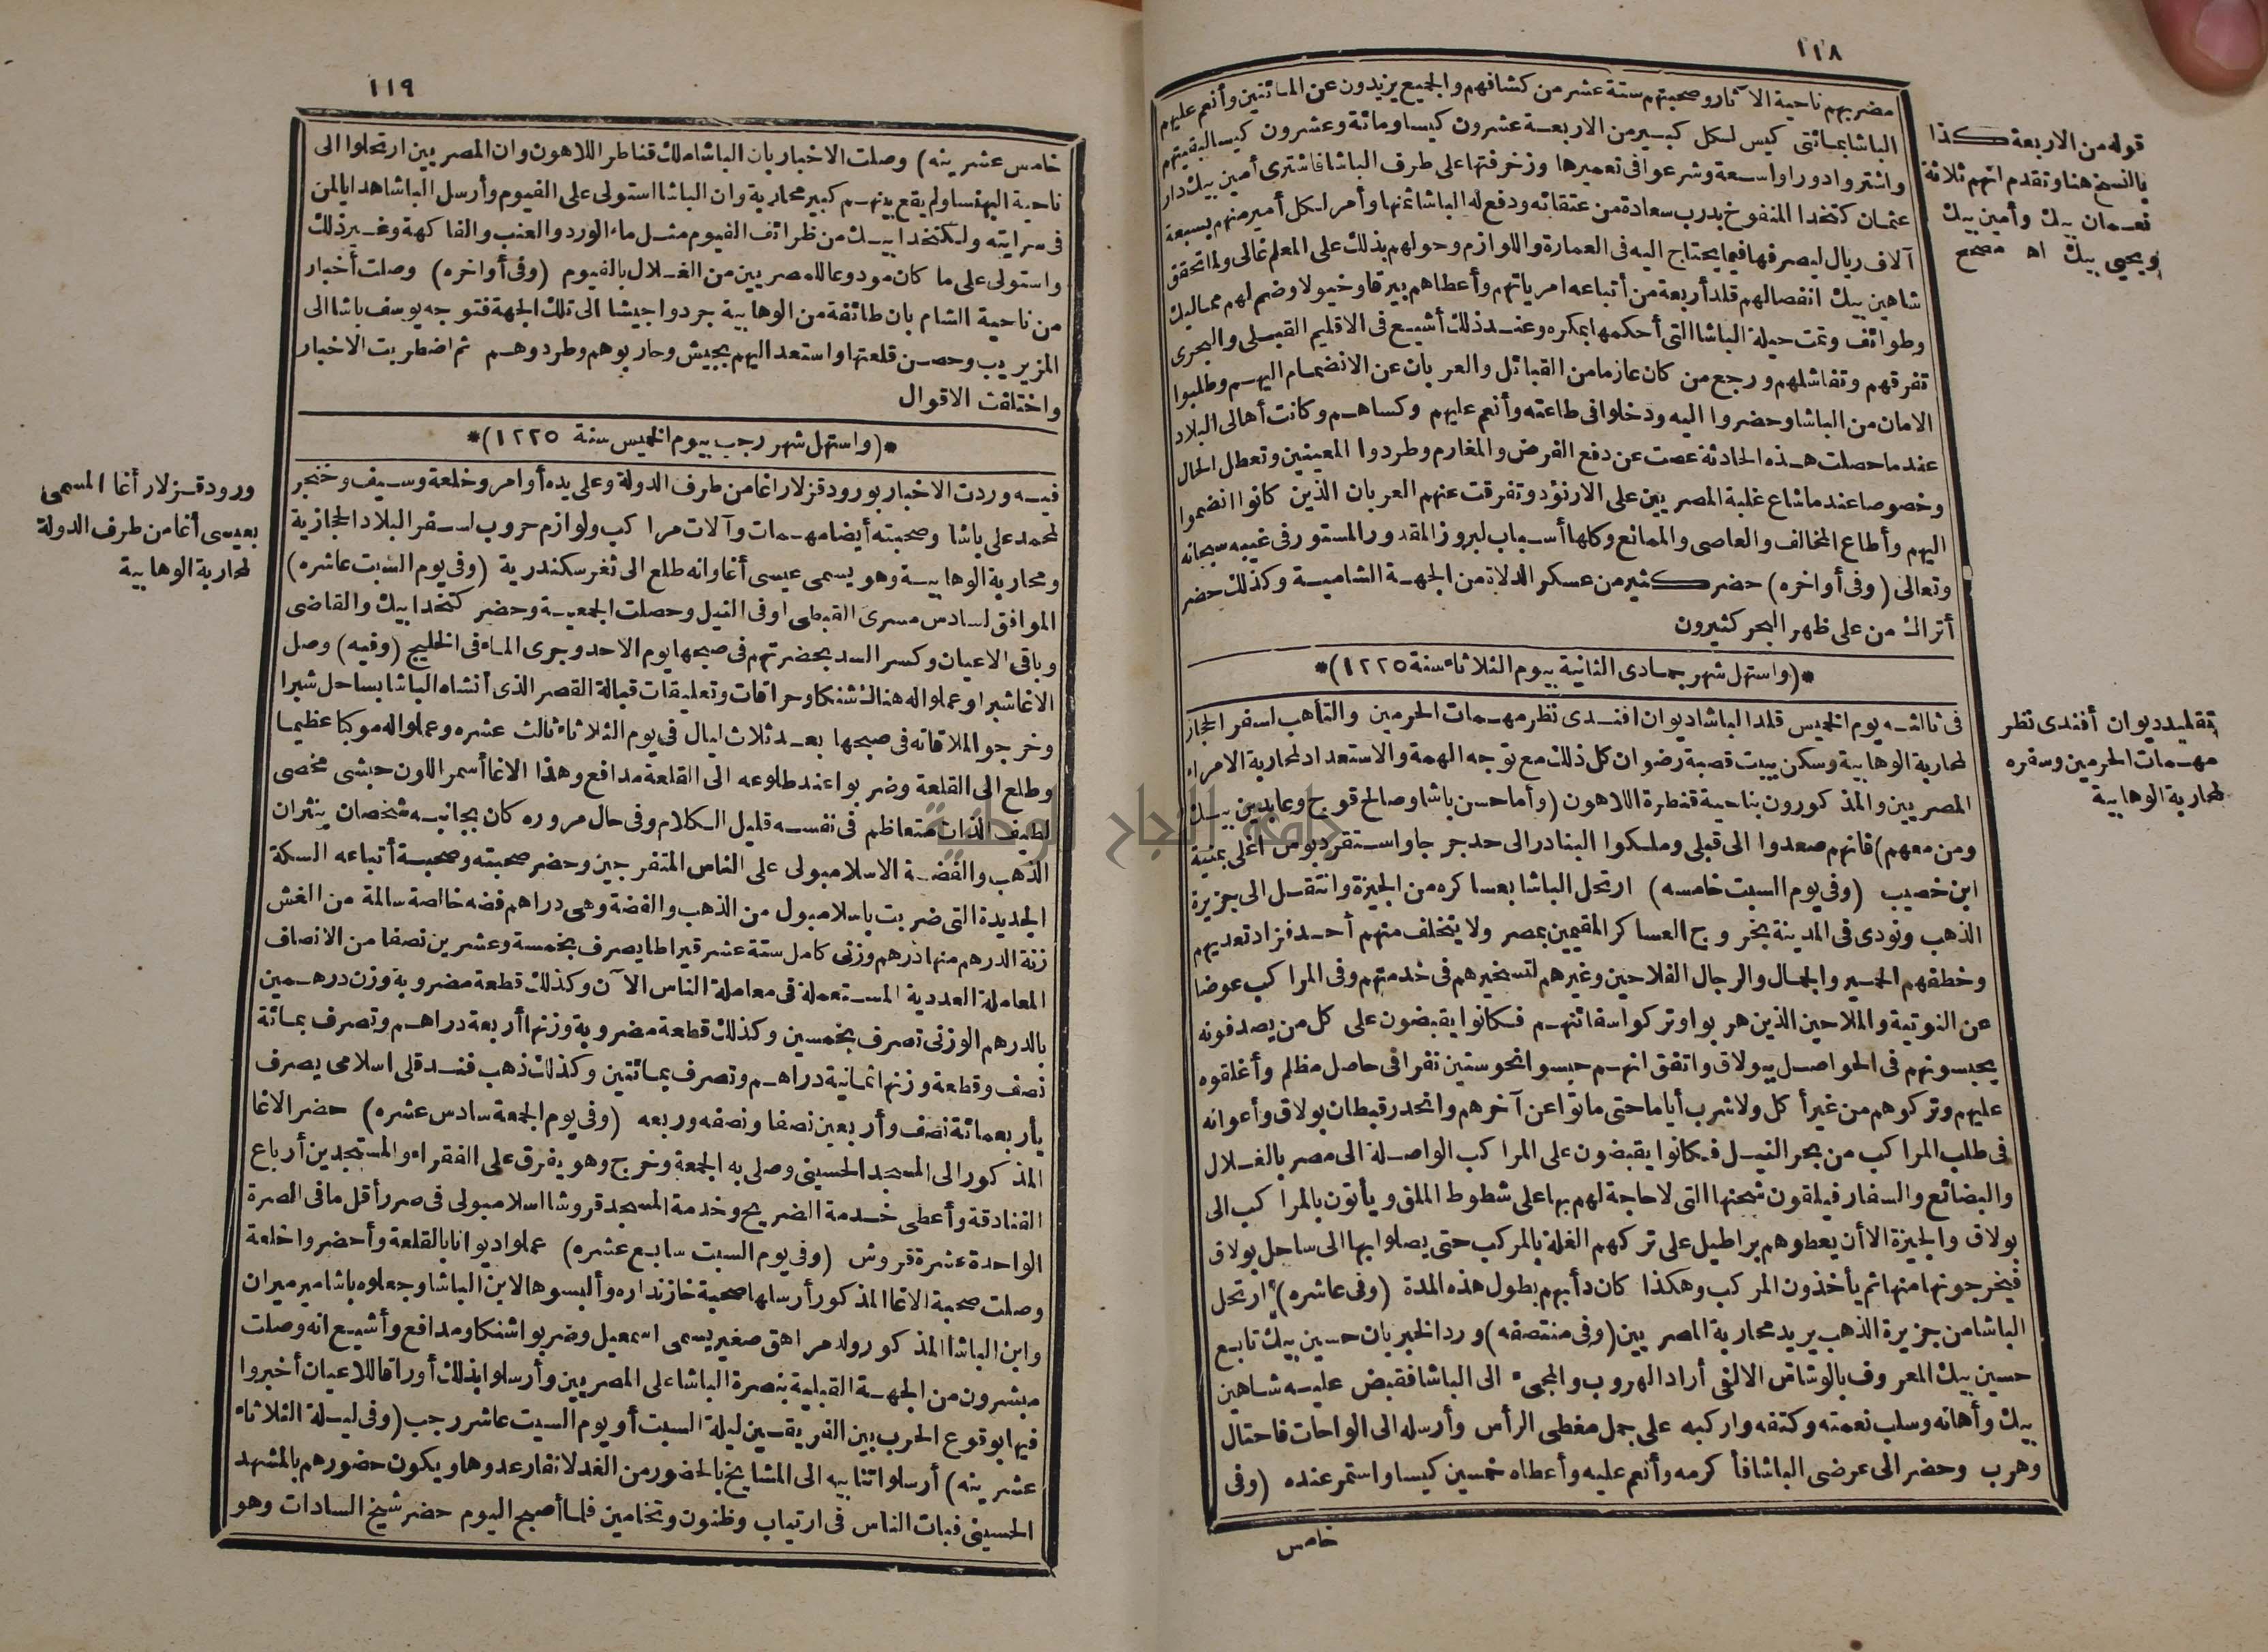 ١١٨
مضربهم ناحية الآثار وصحبتهم ستة عشر من كشافهم والجميع يزيدون عن المائتين وأنعم عليهم
الباشا بمائتى كيس لكل كبير من الاربعة عشرون كيسا ومائة وعشرون كيسا لبقيتهم
واشتروا دورا واسعة وشرعوا فى تعميرها وزخرفتها على طرف الباشا فاشترى أمين بيك دار
عثمان كتخدا المنفوخ بدرب سعادة من عتقائه ودفع له الباشا ثمنها وأمر لكل أمير منهم بسبعة
آلاف ريال ليصرفها فيما يحتاج اليه فى العمارة واللوازم وحولهم بذلك على المعلم غالى ولما تحقق
شاهين بيك انفصالهم قلد أربعة من أتباعه امرياتهم وأعطاهم بيرقا وخيولا وضم لهم مماليك
وطوائف وتمت حيلة الباشا التى أحكمها بمكره وعند ذلك أشيع فى الاقليم القبلى والبحرى
تفرقهم وتفاشلهم ورجع من كان عازما من القبائل والعربان عن الانضمام اليهم وطلبوا
الامان من الباشا وحضروا اليه ودخلوا فى طاعته وأنعم عليهم وكساهم وكانت أهالى البلاد
عندما حصلت هذه الحادثة عصت عن دفع الفرض والمغارم وطردوا المعينين وتعطل الحال
وخصوصا عندما شاع غلبة المصريين على الارنؤد وتفرقت عنهم العربان الذين كانوا انضموا
اليهم وأطاع المخالف والعاصى والممانع وكلها أسباب لبروز المقدور المستور فى غيبه سبحانه
وتعالى (وفى أواخره) حضر كثير من عسكر الدلاة من الجهة الشامية وكذلك حضر
أتراك من على ظهر البحر كثيرون
*(واستهل شهر جمادى الثانية بيوم الثلاثاء سنة ١٢٢٥)*
فى ثالثه يوم الخميس قلد الباشا ديوان افندى نظر مهمات الحرمين والتأهب لسفر الحجاز
لمحاربة الوهابية وسكن ببيت قصبة رضوان كل ذلك مع توجه الهمة والاستعداد لمحاربة الامراء
المصريين والمذكورون بناحية قنطرة اللاهون (وأما حسن باشا وصالح قوج وعابدين بيك
ومن معهم) فانهم صعدوا الى قبلى وملكوا البنادر الى حد جرجا واستقر دبوس أغلى بمنية
ابن خصيب (وفى يوم السبت خامسه) ارتحل الباشا بعساكره من الجيزة وانتقل الى جزيرة
الذهب ونودى فى المدينة بخروج العساكر المقيمين بمصر ولا يتخلف منهم أحد فزاد تعديهم
وخطفهم الحمير والجمال والرجال الفلاحين وغيرهم لتسخيرهم فى خدمتهم وفى المراكب عوضا
عن النوتية والملاحين الذين هربوا وتركوا سفائنهم فكانوا يقبضون على كل من يصدفونه
يحبسونهم فى الحواصل ببولاق واتفق انهم حبسوا نحو ستين نفرا فى حاصل مظلم وأغلقوه
عليهم وتركوهم من غير أكل ولا شرب أياما حتى ماتوا عن آخرهم وانحدر قبطان بولاق وأعوانه
فى طلب المراكب من بحر النيل فكانوا يقبضون على المراكب الواصلة الى مصر بالغلال
والبضائع والسفار فيلقون شحنها التى لا حاجة لهم بها على شطوط الملق ويأتون بالمراكب الى
بولاق والجيزة الا أن يعطوهم براطيل على تركهم الغلة بالمركب حتى يصلوا بها الى ساحل بولاق
فيخرجونها منها ثم يأخذون المركب وهكذا كان دأبهم بطول هذه المدة (وفى عاشره) ارتحل
الباشا من جزيرة الذهب يريد محاربة المصريين (وفى منتصفه) ورد الخبر بان حسين بيك تابع
حسين بيك المعروف بالوشاش الالفى أراد الهروب والمجىء الى الباشا فقبض عليه شاهين
بيك وأهانه وسلب نعمته وكتفه واركبه على جمل مغطى الرأس وأرسله الى الواحات فاحتال
وهرب وحضر الى عرضى الباشا فأكرمه وأنعم عليه وأعطاه خمسين كيسا واستمر عنده (وفى
خامس
قوله من الاربعة كذا
بالنسخ هنا وتقدم انهم ثلاثة
نعمان بيك وأمين بيك
ويحيى بيك اه مصحح
تقليد ديوان أفندى نظر
مهمات الحرمين وسفره
لمحاربة الوهابية
١١٩
خامس عشرينه) وصلت الاخبار بان الباشا ملك قناطر اللاهون وان المصريين ارتحلوا الى
ناحية البهنسا ولم يقع بينهم كبير محاربة وان الباشا استولى على الفيوم وأرسل الباشا هدايا لمن
فى سرايته ولكتخدا بيك من ظرائف الفيوم مثل ماء الورد والعنب والفاكهة وغير ذلك
واستولى على ما كان مودوعا للمصريين من الغلال بالفيوم (وفى أواخره) وصلت أخبار
من ناحية الشام بان طائفة من الوهابية جردوا جيشا الى تلك الجهة فتوجه يوسف باشا الى
المزيريب وحصن قلعتها واستعد اليهم بجيش وحاربوهم وطردوهم ثم اضطربت الاخبار
واختلفت الاقوال
*(واستهل شهر رجب بيوم الخميس سنة ١٢٢٥)*
فيه وردت الاخبار بورود قزلار اغا من طرف الدولة وعلى يده أوامر وخلعة وسيف وخنجر
لمحمد على باشا وصحبته أيضا مهمات وآلات مراكب ولوازم حروب لسفر البلاد الحجازية
ومحاربة الوهابية وهو يسمى عيسى أغا وانه طلع الى ثغر سكندرية (وفى يوم السبت عاشره)
الموافق لسادس مسرى القبطى اوفى النيل وحصلت الجمعية وحضر كتخدا بيك والقاضى
وباقى الاعيان وكسر السد بحضرتهم فى صبحها يوم الاحد وجرى الماء فى الخليج (وفيه) وصل
الاغا شبرا وعملوا له هناك شنكا وحراقات وتعليقات قبالة القصر الذى أنشاه الباشا بساحل شبرا
وخرجوا لملاقاته فى صبحها بعد ثلاث ليال فى يوم الثلاثاء ثالث عشره وعملوا له موكبا عظيما
وطلع الى القلعة وضربوا عند طلوعه الى القلعة مدافع وهذا الاغا أسمر اللون حبشى مخصى
لطيف الذات متعاظم فى نفسه قليل الكلام وفى حال مروره كان بجانبه شخصان ينثران
الذهب والفضة الاسلامبولى على الناس المتفرجين وحضر صحبته وصحبة أتباعه السكة
الجديدة التى ضربت باسلامبول من الذهب والفضة وهى دراهم فضه خالصة سالمة من الغش
زنة الدرهم منها درهم وزنى كامل ستة عشر قيراطا يصرف بخمسة وعشرين نصفا من الانصاف
المعاملة العددية المستعملة فى معاملة الناس الآن وكذلك قطعة مضروبة وزن درهمين
بالدرهم الوزنى تصرف بخمسين وكذلك قطعة مضروبة وزنها أربعة دراهم وتصرف بمائة
نصف وقطعة وزنها ثمانية دراهم وتصرف بمائتين وكذلك ذهب فندقلى اسلامى يصرف
بأربعمائة نصف وأربعين نصفا ونصفه وربعه (وفى يوم الجمعة سادس عشره) حضر الاغا
المذكور الى المسجد الحسينى وصلى به الجمعة وخرج وهو يفرق على الفقراء والمستجدين أرباع
الفنادقة وأعطى خدمة الضريح وخدمة المسجد قروشا اسلامبولى فى صرر أقل ما فى الصرة
الواحدة عشرة قروش (وفى يوم السبت سابع عشره) عملوا ديوانا بالقلعة وأحضروا خلعة
وصلت صحبة الاغا المذكور أرسلها صحبة خازنداره وألبسوها لابن الباشا وجعلوه باشا ميرميران
وابن الباشا المذكور ولد مراهق صغير يسمى اسمعيل وضربوا شنكا ومدافع وأشيع انه وصلت
مبشرون من الجهة القبلية بنصرة الباشا على المصريين وأرسلوا بذلك أوراقا للاعيان أخبروا
فيها بوقوع الحرب بين الفريقين ليلة السبت أو يوم السبت عاشر رجب (وفى ليلة الثلاثاء
عشرينه) أرسلوا تنابيه الى المشايخ بالحضور من الغد لانفار عدوها ويكون حضورهم بالمشهد
الحسينى فبات الناس فى ارتياب وظنون وتخامين فلما أصبح اليوم حضر شيخ السادات وهو
ورود قزلار أغا المسمى
بعيسى أغا من طرف الدولة
لمحاربة الوهابية
جامعة النجاح الوطنية